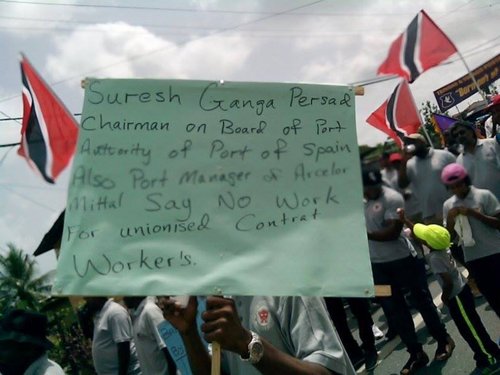 Suresh Ganga Persad
Chairman on Board of Port
Auttority of Port of Spain
Also Port Manager of Arcelor
Mittal Say No Work
For unionised Contrat
Worker's.